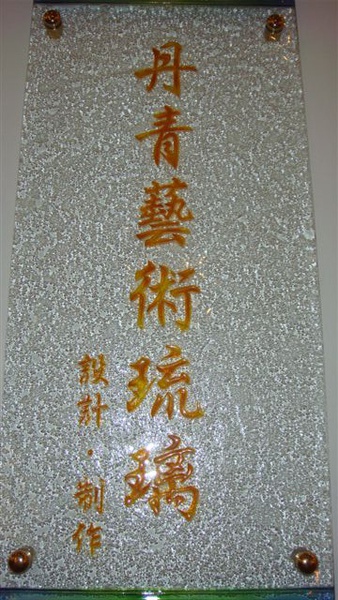 丹青藝術琉璃
設計·制作